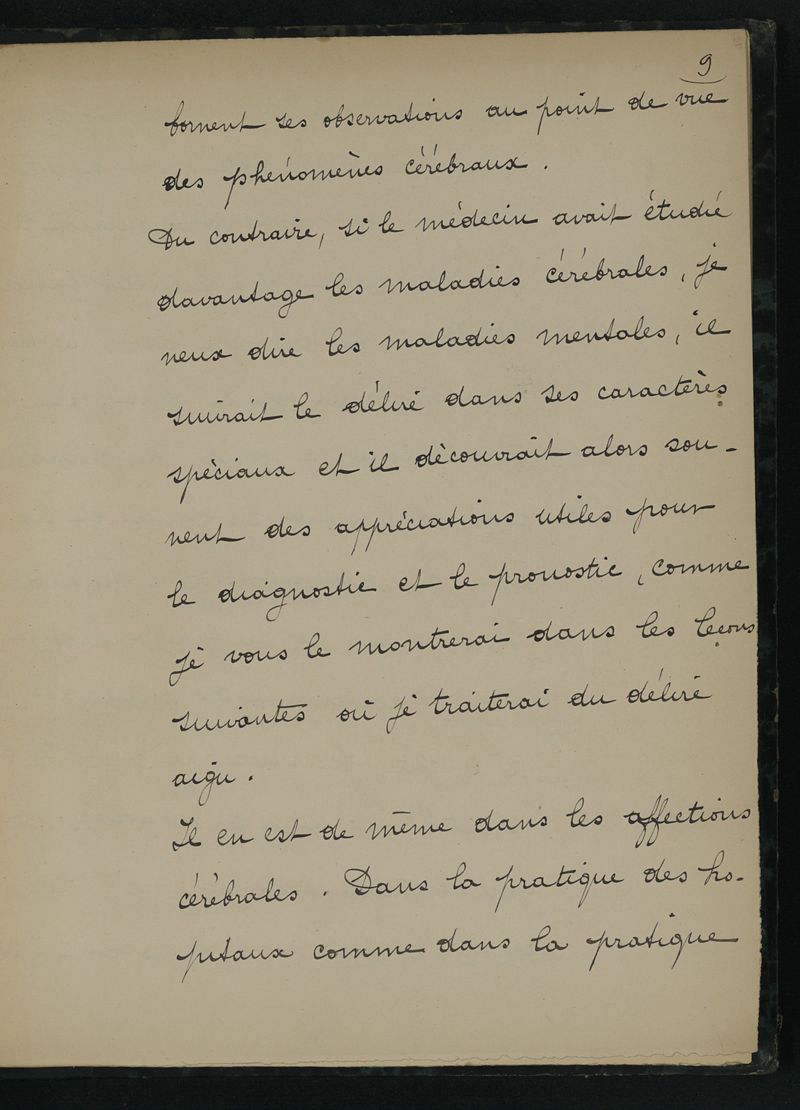 9
bornent ses observations au point de vue
des phénomènes cérébraux.
Du contraire, si le médecin avait étudié
davantage les maladies cérébrales, je
veux dire les maladies mentales, il
suivrait le délire dans ses caractères
spéciaux et il découvrait alors sou-
vent des appréciations utiles pour
le diagnostic et le pronostic, comme
je vous le montrerai dans les leçons
suivantes où je traiterai du délire
aigu.
Il en est de même dans les affections
cérébrales. Dans la pratique des ho-
pitaux comme dans la pratique